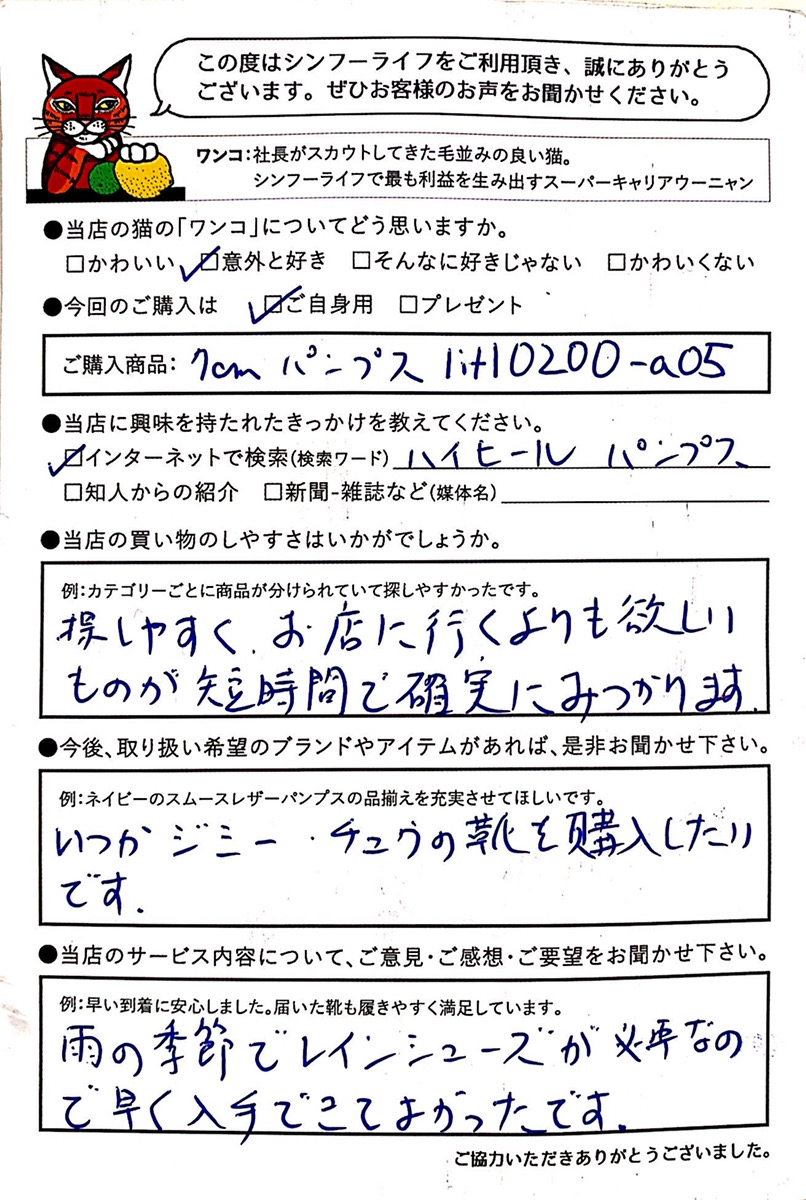 この度はシンフーライフをご利用頂き、誠にありがとう
ございます。ぜひお客様のお声をお聞かせください。
ワンコ：社長がスカウトしてきた毛並みの良い猫。
シンフーライフで最も利益を生み出すスーパーキャリアウーニャン
●当店の猫の「ワンコ」についてどう思いますか。
□かわいい ☑意外と好き □そんなに好きじゃない □かわいくない
●今回のご購入は ☑ご自身用 □プレゼント
ご購入商品： 7cm パンプス lit10200-a05
●当店に興味を持たれたきっかけを教えてください。
☑インターネットで検索(検索ワード) ハイヒール パンプス
□知人からの紹介 □新聞-雑誌など(媒体名)
●当店の買い物のしやすさはいかがでしょうか。
例：カテゴリーごとに商品が分けられていて探しやすかったです。
探しやすく、お店に行くよりも欲しい
ものが短時間で確実にみつかります。
●今後、取り扱い希望のブランドやアイテムがあれば、是非お聞かせ下さい。
例：ネイビーのスムースレザーパンプスの品揃えを充実させてほしいです。
いつかジミー・チュウの靴を購入したい
です。
●当店のサービス内容について、ご意見・ご感想・ご要望をお聞かせ下さい。
例：早い到着に安心しました。届いた靴も履きやすく満足しています。
雨の季節でレインシューズが必要なの
で早く入手できてよかったです。
ご協力いただきありがとうございました。